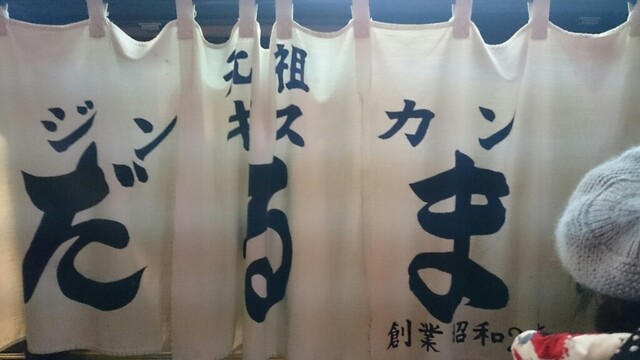 元祖
ジンギスカン
だるま
創業昭和2